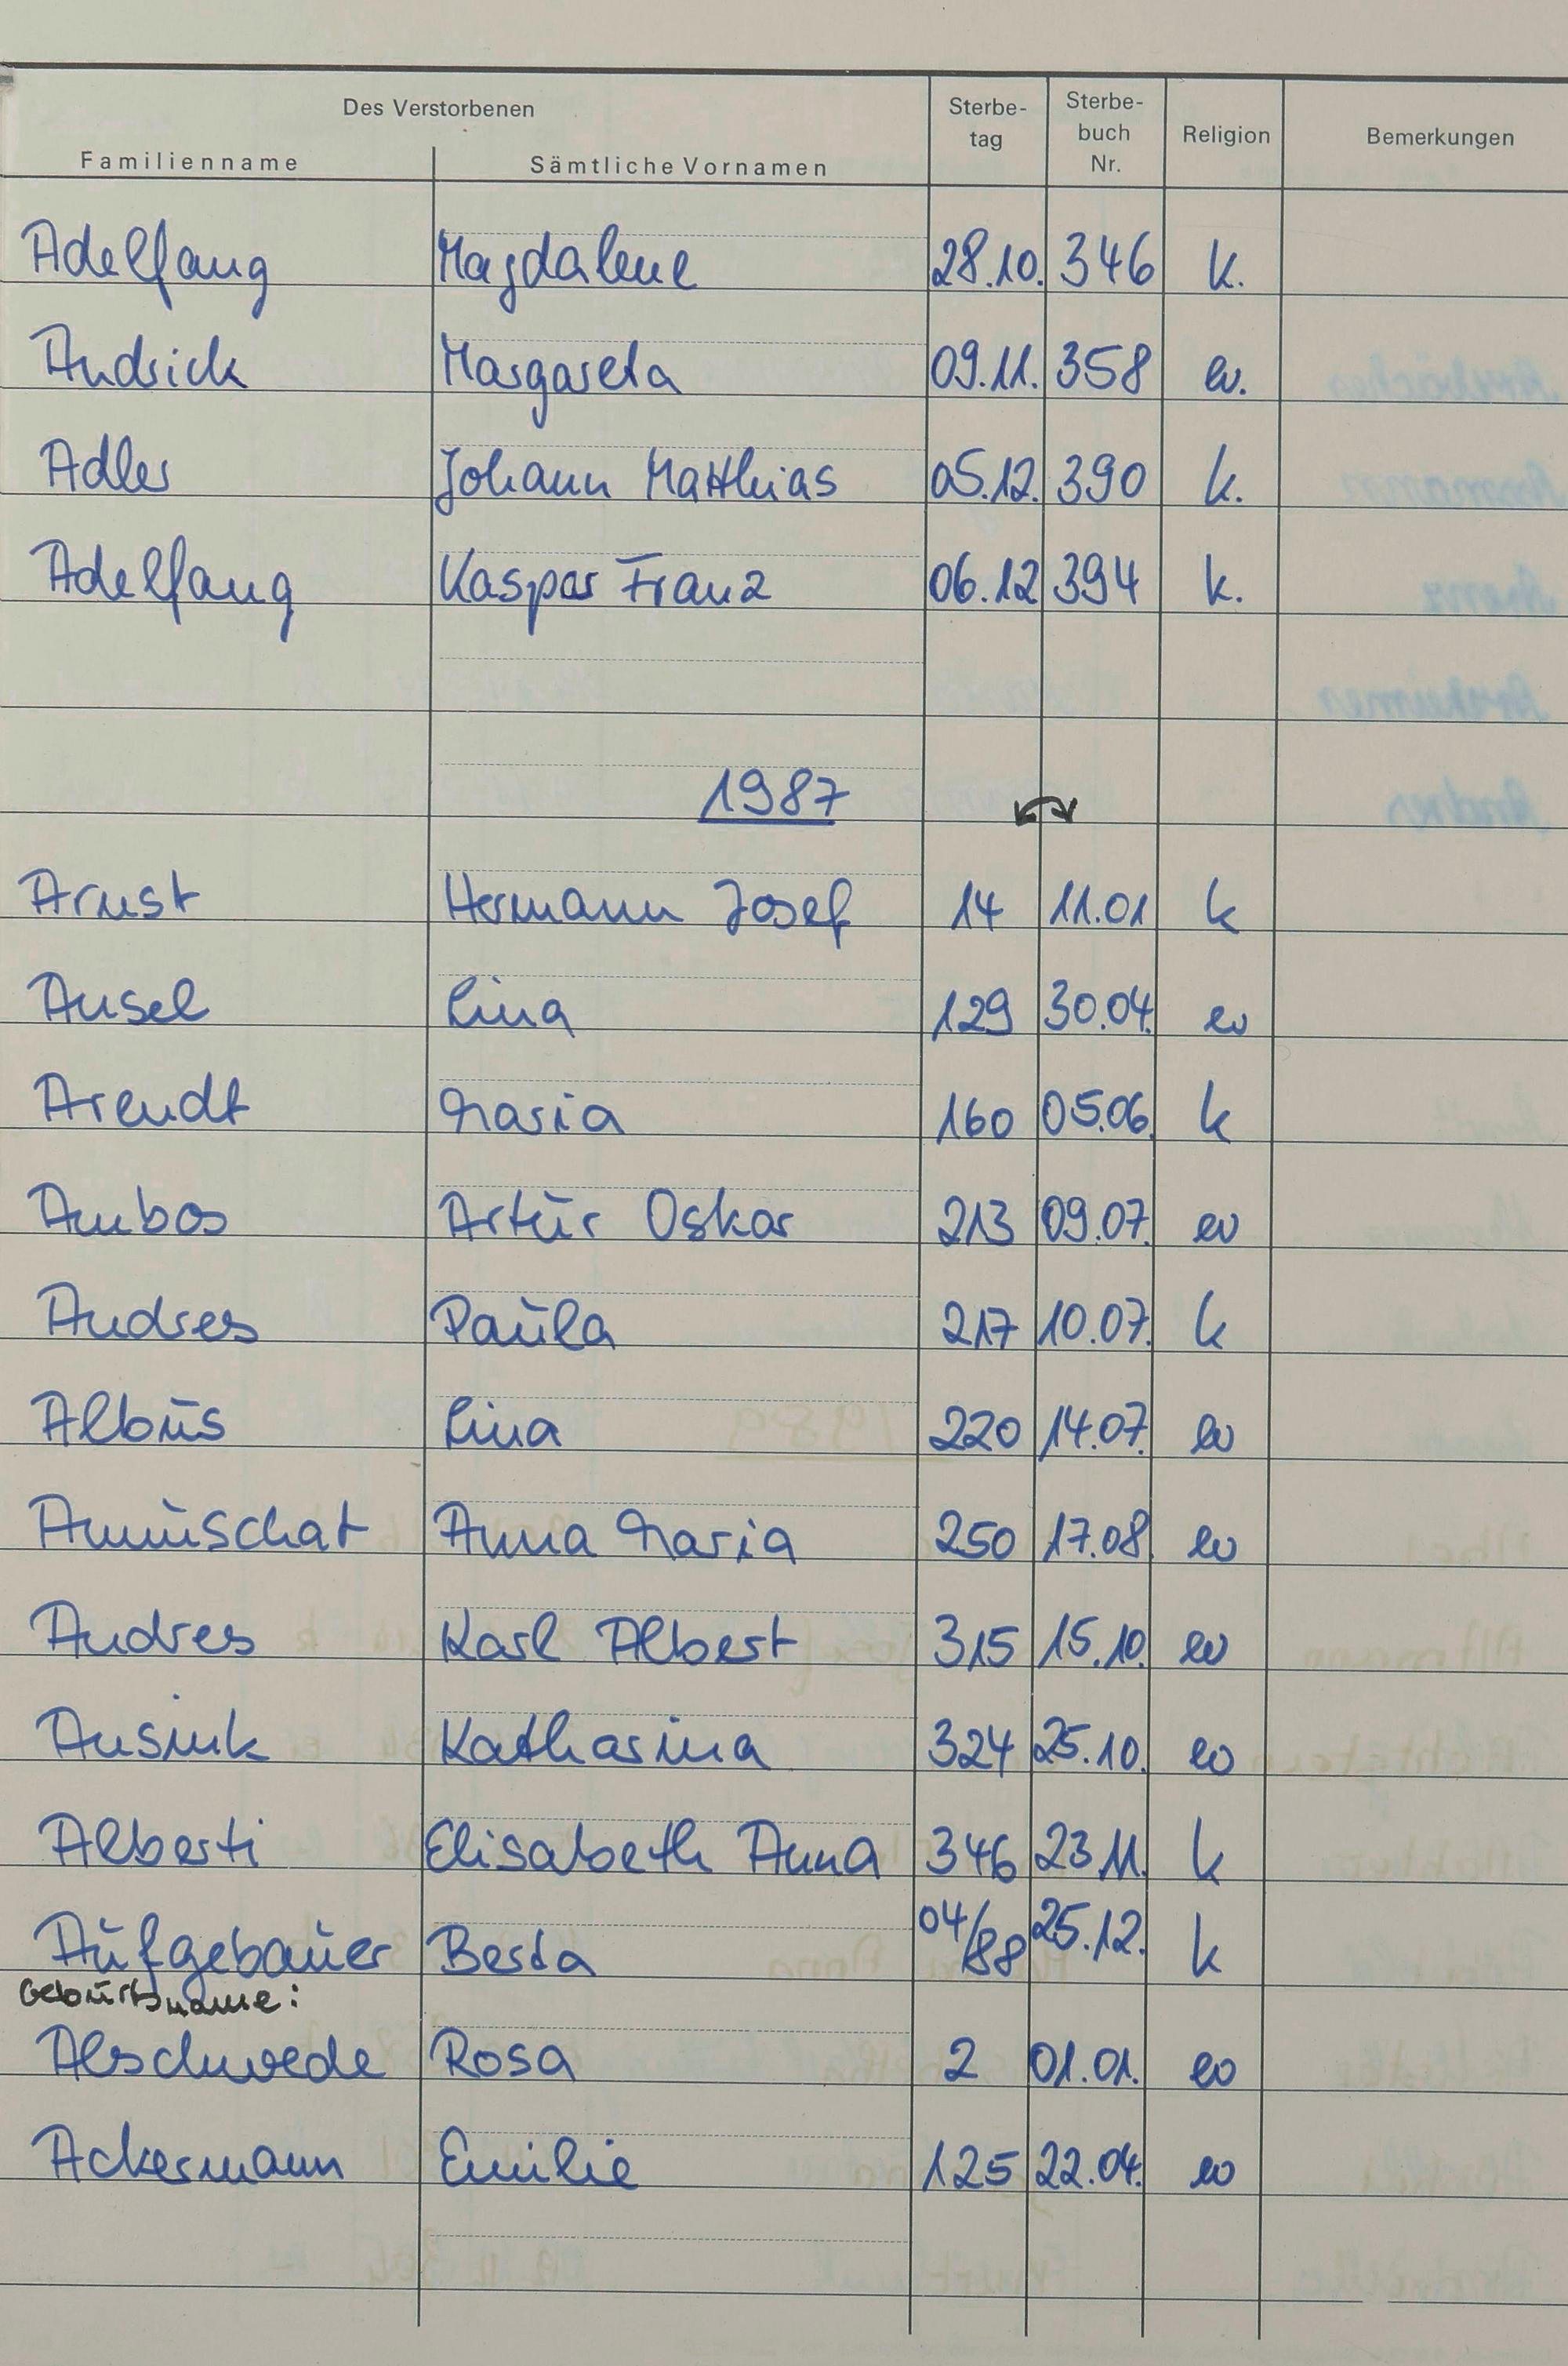 Des Verstorbenen
Familienname Sämtliche Vornamen Sterbe-tag Sterbe-buch Nr. Religion Bemerkungen
Adelfang Magdalene 28.10. 346 k.
Andrick Margareta 09.11. 358 ev.
Adler Johann Matthias 05.12. 390 k.
Adelfang Kaspar Franz 06.12 394 k.
1987
Arnst Hermann Josef 14 11.01 k
Ansel Lina 129 30.04. ev
Arendt Maria 160 05.06. k
Ambos Artur Oskar 213 09.07. ev
Andres Paula 217 10.07. k
Albus Lina 220 14.07. ev
Annuschat Anna Maria 250 17.08. ev
Andres Karl Albert 315 15.10. ev
Ansink Katharina 324 25.10. ev
Alberti Elisabeth Anna 346 23.11. k
Aufgebauer Berta 04/88 25.12. k
Geburtsname:
Alschwede Rosa 2 01.01. ev
Ackermann Emilie 125 22.04. ev